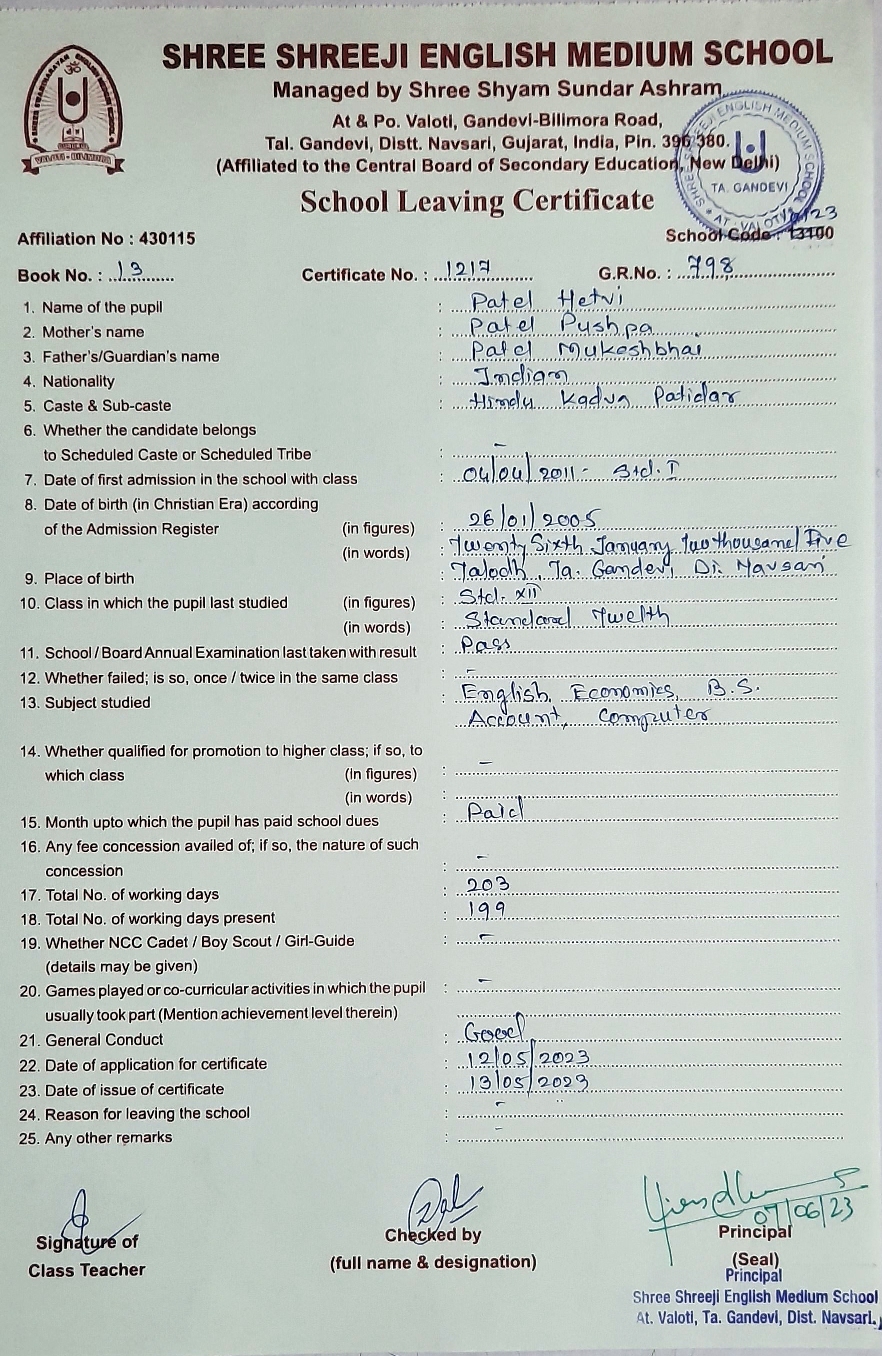 SHREE SHREEJI ENGLISH MEDIUM SCHOOL
Managed by Shree Shyam Sundar Ashram
At & Po. Valoti, Gandevi-Bilimora Road,
Tal. Gandevi, Distt. Navsari, Gujarat, India, Pin. 396 380.
(Affiliated to the Central Board of Secondary Education, New Delhi)
VALOTI - BILIMORA
SHREE SHREEJI ENGLISH MEDIUM SCHOOL
TA. GANDEVI
AT - VALOTI
School Leaving Certificate
Affiliation No : 430115 School Code : 13100
Book No. : 13 Certificate No. : 1217 G.R.No. : 798
1. Name of the pupil : Patel Hetvi
2. Mother's name : Patel Pushpa
3. Father's/Guardian's name : Patel Mukeshbhai
4. Nationality : Indian
5. Caste & Sub-caste : Hindu Kadva Patidar
6. Whether the candidate belongs
to Scheduled Caste or Scheduled Tribe : -
7. Date of first admission in the school with class : 04/04/2011 - Std. I
8. Date of birth (in Christian Era) according
of the Admission Register (in figures) : 26/01/2005
(in words) : Twenty Sixth January Two thousand Five
9. Place of birth : Talodh, Ta. Gandevi, Di. Navsari
10. Class in which the pupil last studied (in figures) : Std. XII
(in words) : Standard Twelth
11. School / Board Annual Examination last taken with result : Pass
12. Whether failed; is so, once / twice in the same class : -
13. Subject studied : English, Economics, B.S.
: Account, Computer
14. Whether qualified for promotion to higher class; if so, to
which class (in figures) : -
(in words) :
15. Month upto which the pupil has paid school dues : Paid
16. Any fee concession availed of; if so, the nature of such
concession : -
17. Total No. of working days : 203
18. Total No. of working days present : 199
19. Whether NCC Cadet / Boy Scout / Girl-Guide : -
(details may be given)
20. Games played or co-curricular activities in which the pupil : -
usually took part (Mention achievement level therein)
21. General Conduct : Good
22. Date of application for certificate : 12/05/2023
23. Date of issue of certificate : 13/05/2023
24. Reason for leaving the school : - "
25. Any other remarks : -
07/06/23
Signature of Checked by Principal
Class Teacher (full name & designation) (Seal)
Principal
Shree Shreeji English Medium School
At. Valoti, Ta. Gandevi, Dist. Navsari.